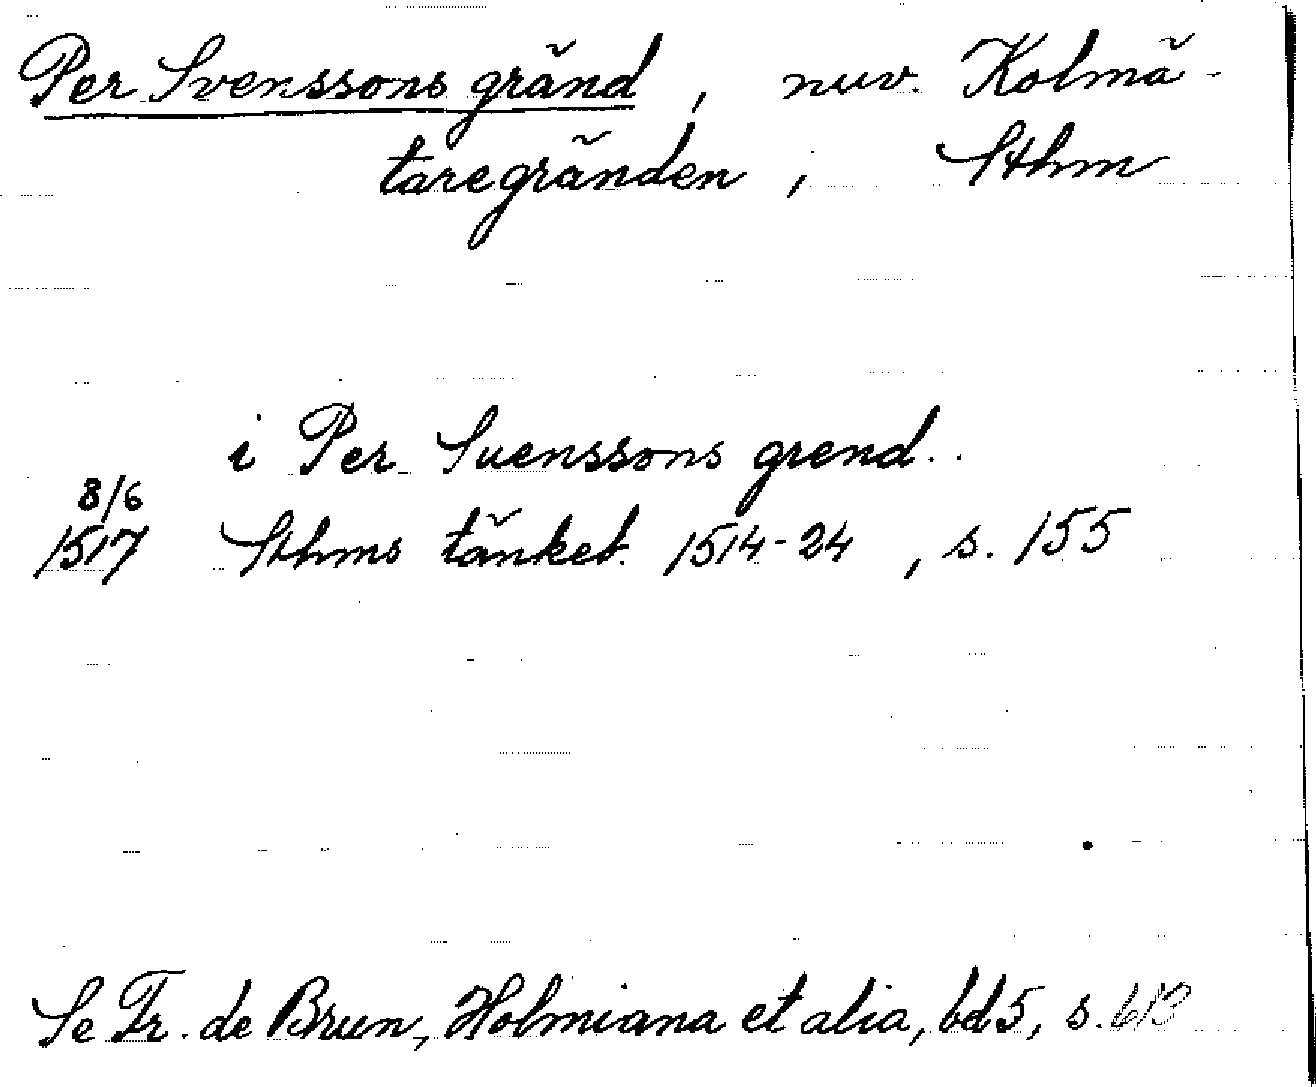 Per Svenssons gränd, nuv. Kolmä-
taregränden, Sthm
i Per Suenssons grend..
8/6
1517 Sthms tänkeb. 1514-24, s. 155
Se Fr. de Brun, Holmiana et alia, bd 5, s. 613